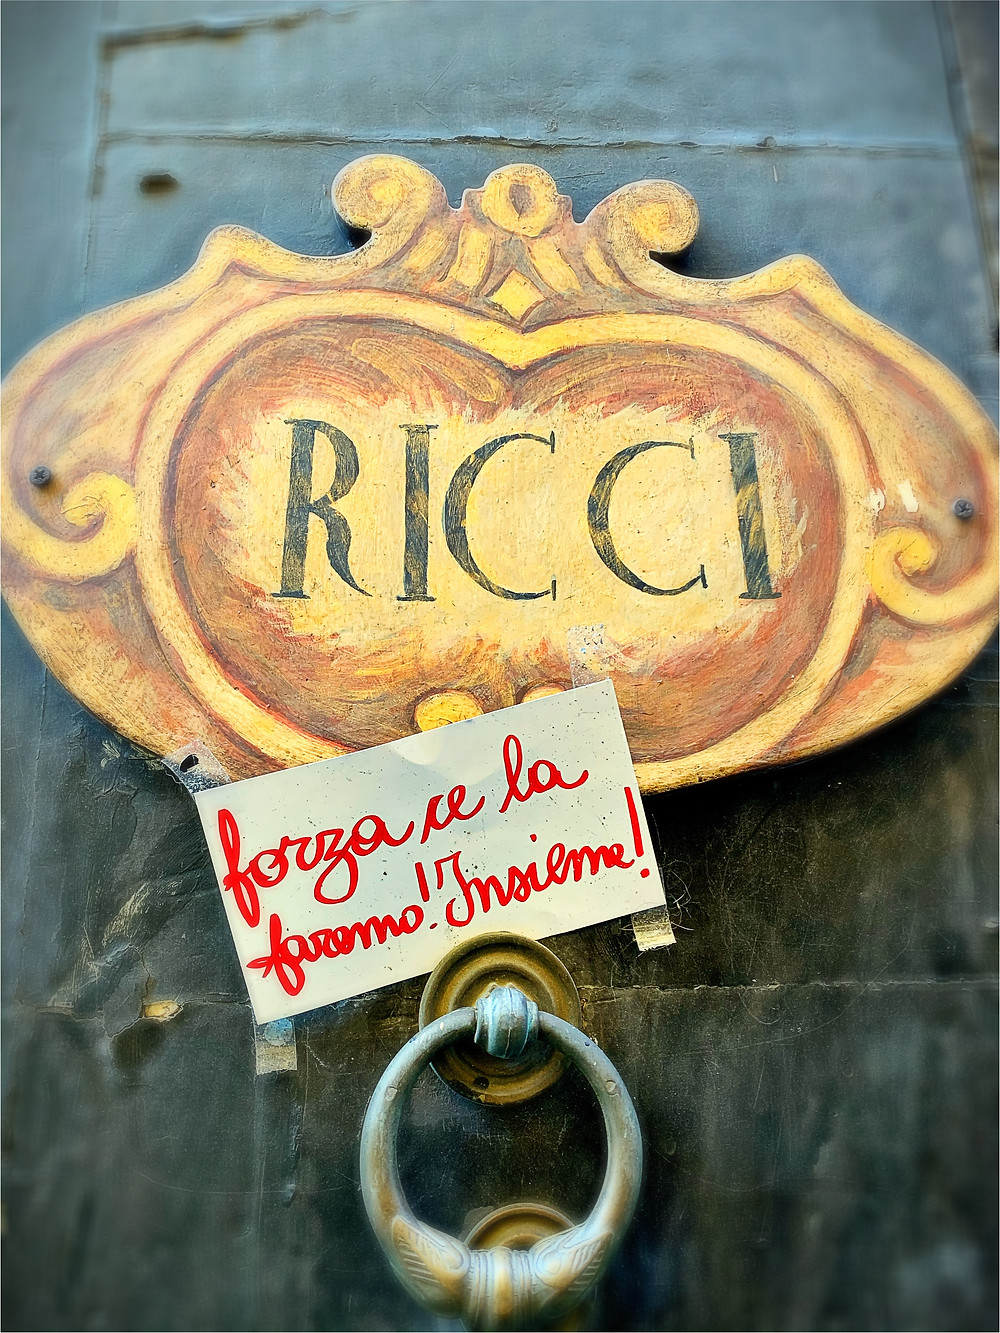 RICCI
forza ce la
faremo! Insieme!